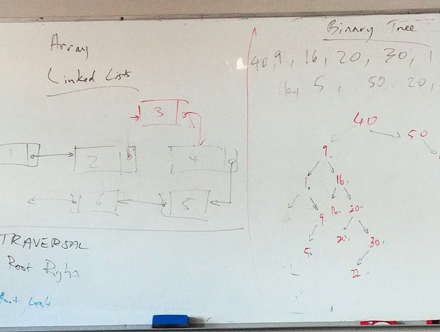 Array
Linked Lists
3
2
4
5
TRAVERSAL
Root Right
Binary Tree
40, 9, 16, 20, 30, 1
5, 50, 20,
40
50
9
1 16
9 16 20
5 20 30